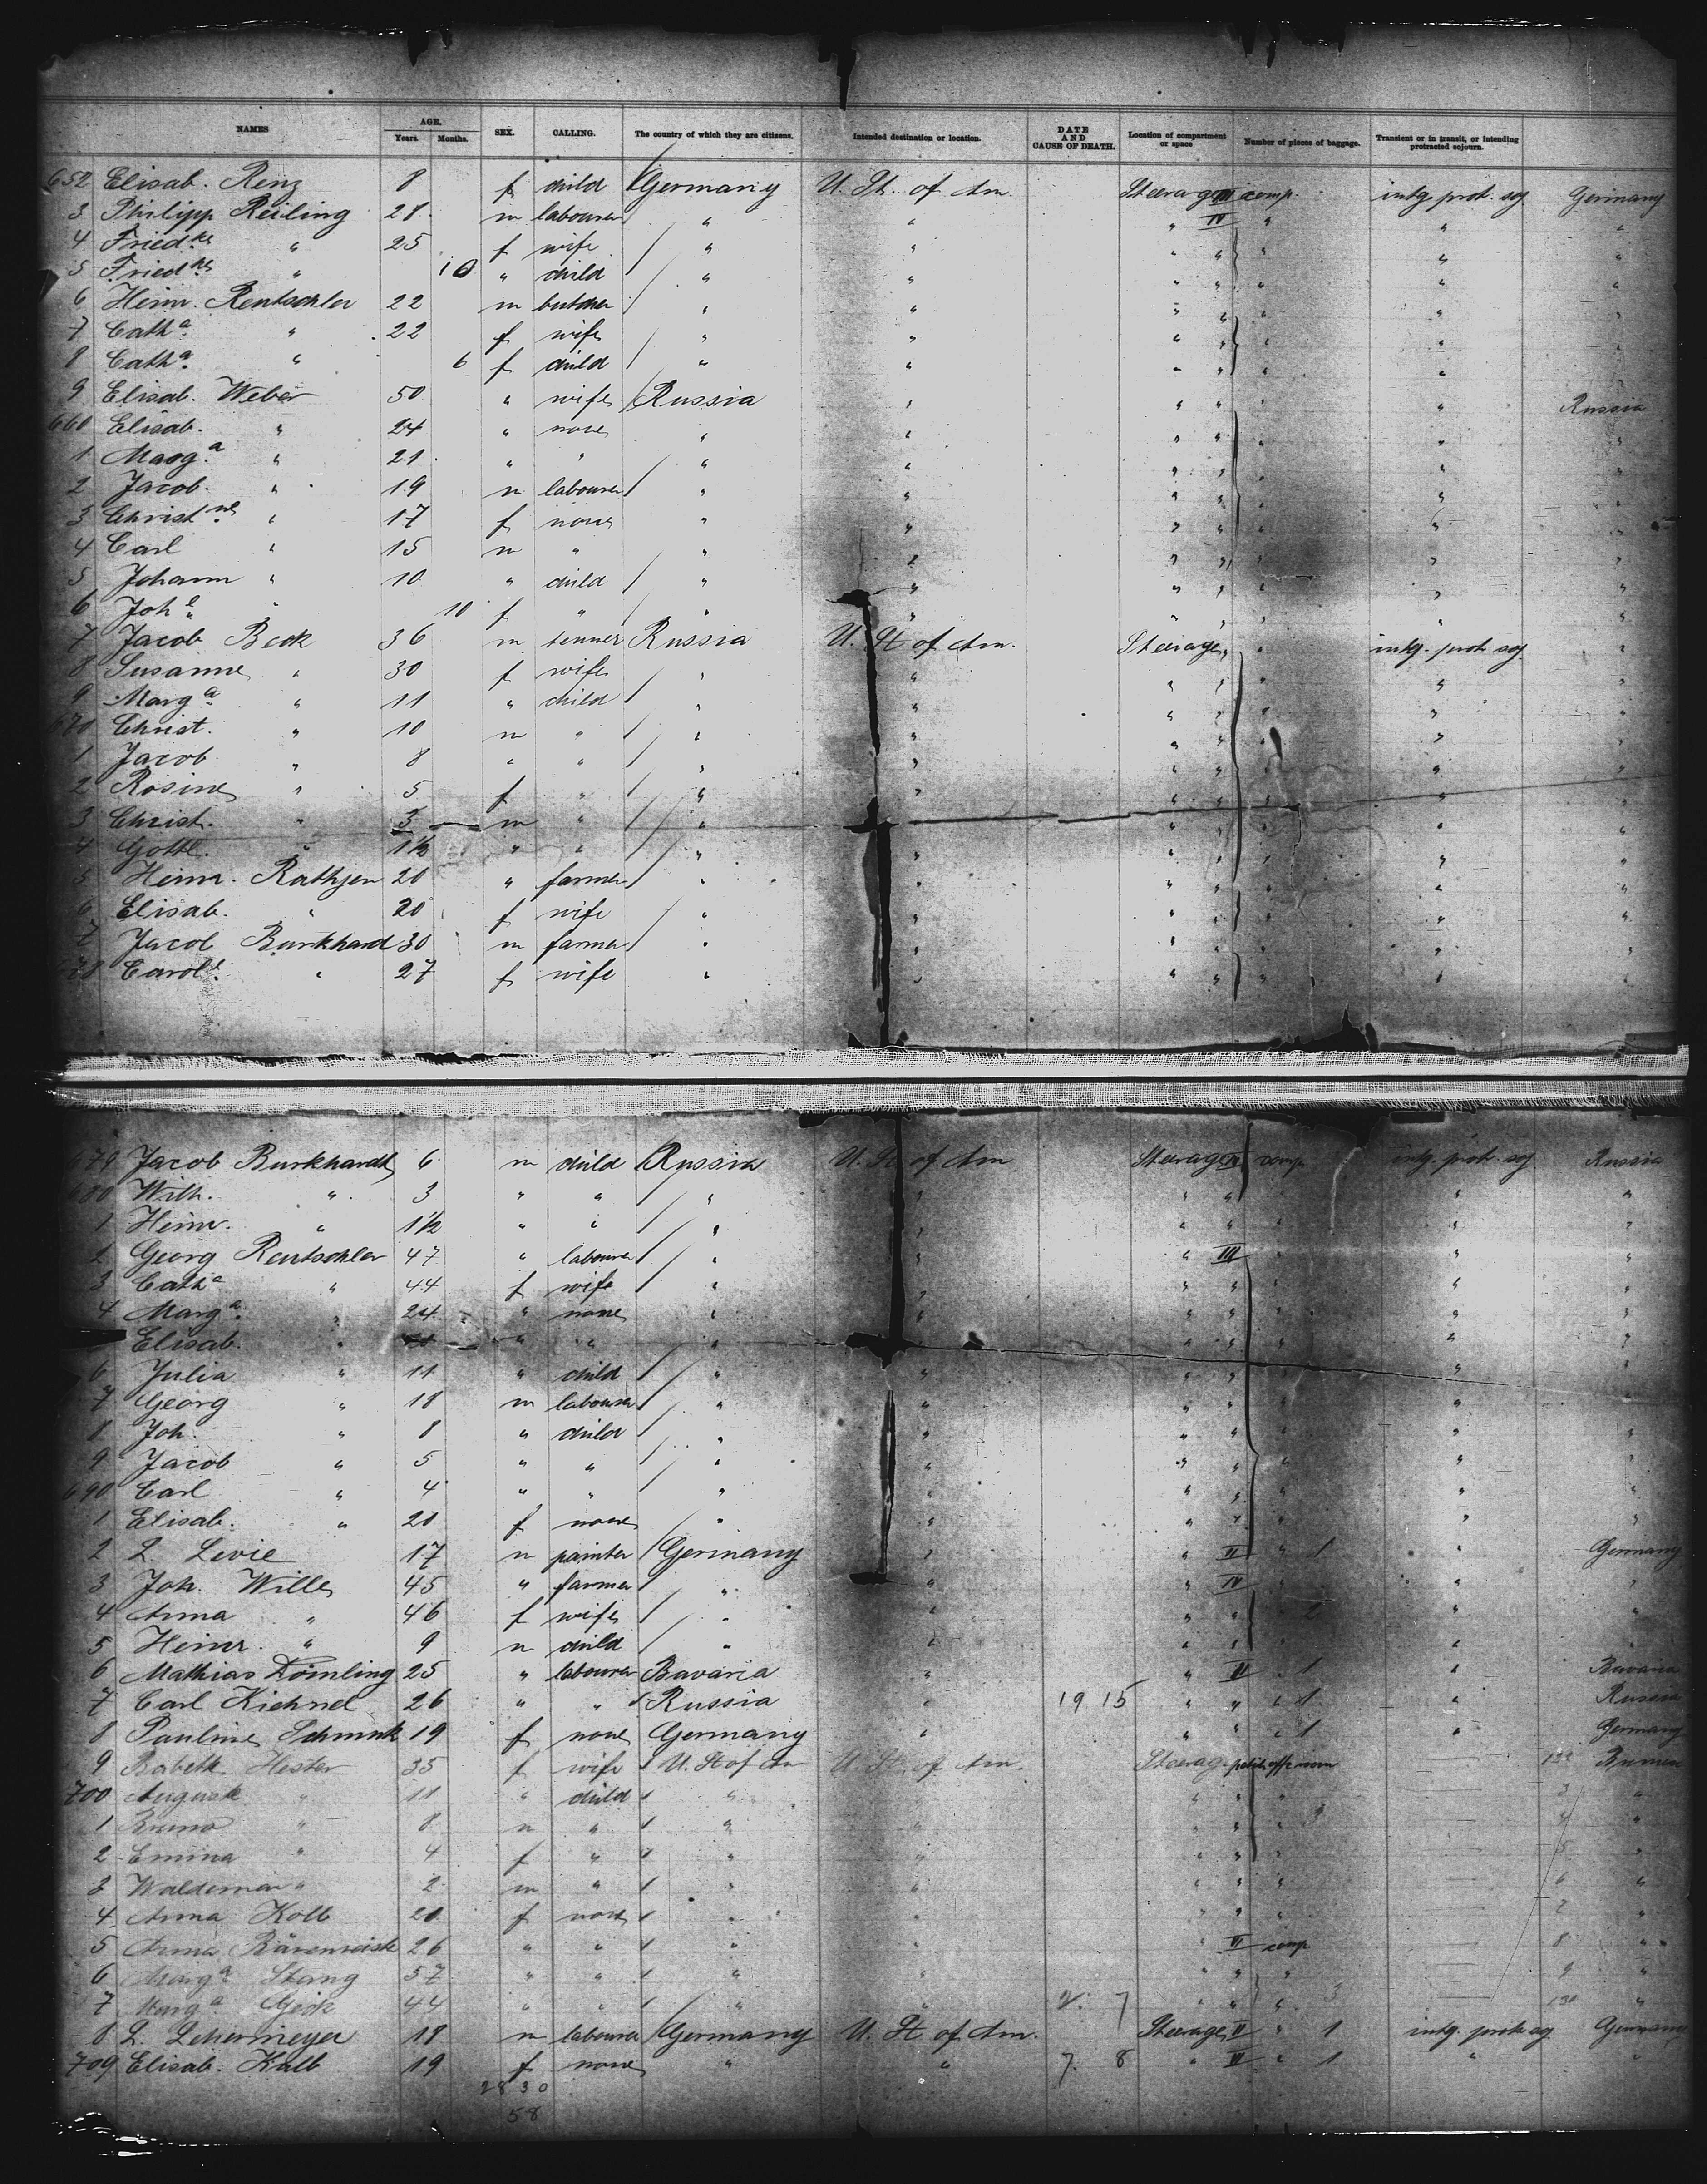 NAMES AGE. Years. Months. SEX. CALLING. The country of which they are citizens. Intended destination or location. DATE AND CAUSE OF DEATH. Location of compartment or space Number of pieces of baggage. Transient or in transit, or intending protracted sojourn.
652 Elisab. Renz 8 f child Germany U. St. of Am. Steerage III comp. intg. prot. soj Germany
3 Philipp Reiling 28 m labourer " " " IV " " "
4 Friedke " 25 f wife " " " " " " "
5 Friedke " 10 " child " " " " " " "
6 Heinr. Rentschler 22 m butcher " " " " " " "
7 Catha " 22 f wife " " " " " " "
8 Catha " 6 f child " " " " " " "
9 Elisab. Weber 50 " wife Russia " " " " " Russia
660 Elisab. " 24 " none " " " " " "
1 Marga " 21 " " " " " " " "
2 Jacob. " 19 m labourer " " " " " "
3 Christne " 17 f none " " " " " "
4 Carl " 15 m " " " " " " "
5 Johann " 10 " child " " " " " " "
6 Johe " 10 f " " " " " " "
7 Jacob Beck 36 m tenner Russia U. St of Am. Steerage " " intg. prot soj "
8 Susanne " 30 f wife " " " " " " "
9 Marga " 11 " child " " " " " " "
670 Christ. " 10 m " " " " " " " "
1 Jacob " 8 " " " " " " " " "
2 Rosine " 5 f " " " " " " " "
3 Christ. " 3 m " " " " " " " "
4 Gottl. " 1½ " " " " " " " " "
5 Heinr. Rathjen 20 " farmer " " " " " " "
6 Elisab. " 20 f wife " " " " " " "
7 Jacob Burkhard 30 m farmer " " " " " " "
678 Carole " 27 f wife " " " " " " "
679 Jacob Burkhardt 6 m child Russia U. St of Am Steerage IV comp intg. prot. soj Russia
680 Wilh. " 3 " " " " " " " " "
1 Heinr. " 1½ " " " " " " " " "
2 Georg Rentschler 47 " labourer " " " III " " "
3 Catha " 44 f wife " " " " " " "
4 Marga " 24 " none " " " " " " "
Elisab. " " " " " " " " " "
6 Julia " 11 " child " " " " " " "
7 Georg " 18 m labourer " " " " " "
8 Joh. " 8 " child " " " " " "
9 Jacob " 5 " " " " " " " " "
690 Carl " 4 " " " " " " " " "
1 Elisab. " 20 f none " " " " " " "
2 L. Levie 17 m painter Germany " " II " 1 " Germany
3 Joh. Wille 45 " farmer " " " IV " "
4 Anna " 46 f wife " " " " 1 " "
5 Heinr. " 9 m child " " " " " "
6 Mathias Dömling 25 " labourer Bavaria " " II 1 " Bavaria
7 Carl Kiehnel 26 " " Russia " 19 15 " " " 1 " Russia
8 Pauline Schmuk 19 f none Germany " " " " 1 " Germany
9 Babett. Hester 35 f wife U. St of Am U. St. of Am. Steerage petit. offr room Bremen
700 Auguste " 11 " child " " " " " 3 "
1 Bruno " 8 m " " " " " " 3 4 "
2 Emina " 4 f " " " " " " 5 "
3 Waldemar " 2 m " " " " " 6 "
4 Anna Kolb 20 f none " " " " 7 "
5 Anna 26 " " " " VI comp 8 "
6 Marga Stang 57 " " " " " " " 9 "
7 Marga 44 " " " " 2. 7 " " " 3 130 "
8 L. Lehermeyer 18 m labourer Germany U. St of Am. Steerage II " 1 intg. prot. soj Germany
709 Elisab. Kalb 19 f none " " 7. 8 " VI " 1 " "
28 30
58